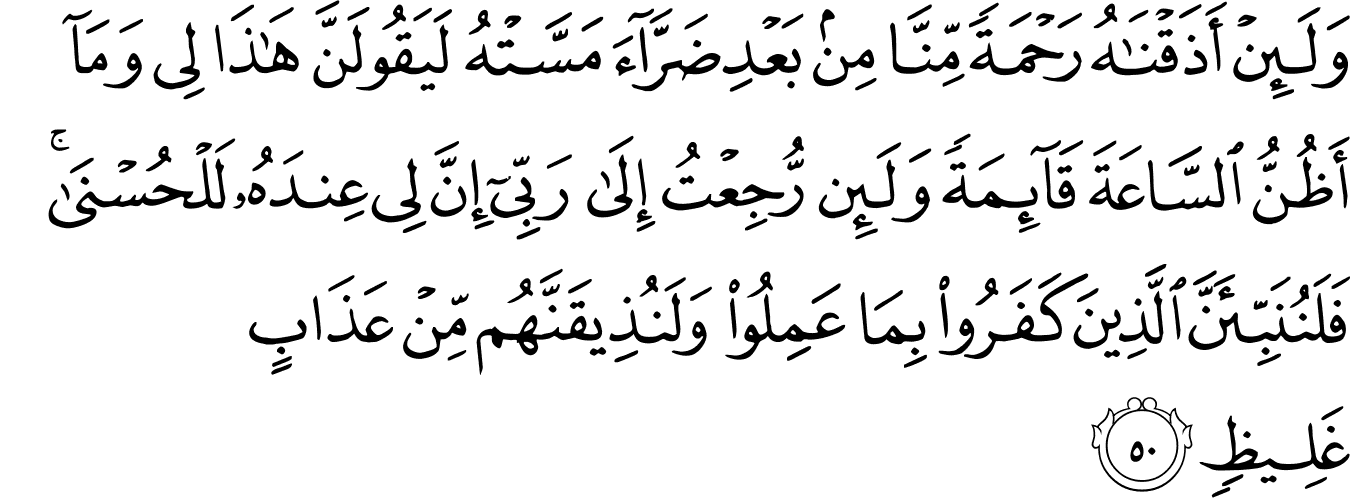 وَلَئِنْ أَذَقْنَٰهُ رَحْمَةً مِّنَّا مِنۢ بَعْدِ ضَرَّآءَ مَسَّتْهُ لَيَقُولَنَّ هَٰذَا لِى وَمَآ
أَظُنُّ ٱلسَّاعَةَ قَآئِمَةً وَلَئِن رُّجِعْتُ إِلَىٰ رَبِّىٓ إِنَّ لِى عِندَهُۥ لَلْحُسْنَىٰ ۚ
فَلَنُنَبِّئَنَّ ٱلَّذِينَ كَفَرُوا۟ بِمَا عَمِلُوا۟ وَلَنُذِيقَنَّهُم مِّنْ عَذَابٍ
غَلِيظٍ ٥٠